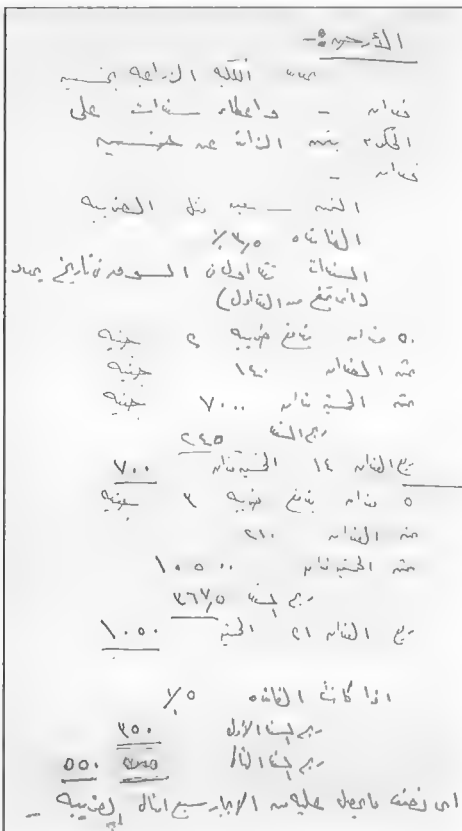 الأرض :-
الملكية الزراعية بخمسين
فدان - واعطاء سندات على
الحكومة بثمن الزائد عن خمسين
فدان -
الثمن - سبعين مثل الضريبة
الفائدة ٣,٥ ٪
السندات تتداول في السوق من تاريخ
٥٠ فدان يدفع ضريبة ٢ جنيه
ثمن الفدان ١٤٠ جنيه
ثمن الخمسين فدان ٧٠٠٠ جنيه
ربح السند ٢٤٥
ريع الفدان ١٤ الخمسين فدان ٧٠٠
٥ فدان يدفع ضريبة ٣ جنيه
ثمن الفدان ٢١٠
ثمن الخمسين فدان ١٠٥٠٠
ربح السند ٣٦٧,٥
ريع الفدان ٢١ الخمسين ١٠٥٠
اذا كانت الفائدة ٥ ٪
ربح السند الأول ٣٥٠
ربح السند الثاني ٥٥٠
اى نصف ما يحصل عليه من الايجار سبع امثال الضريبة -